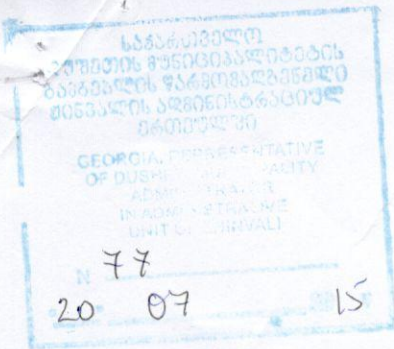 საქართველო
დუშეთის მუნიციპალიტეტის
გამგებლის წარმომადგენელი
ჟინვალის ადმინისტრაციულ
ერთეულში
GEORGIA, REPRESENTATIVE
OF DUSHETI MUNICIPALITY
ADMINISTRATOR
IN ADMINISTRATIVE
UNIT OF ZHINVALI
N 77
20 07 15